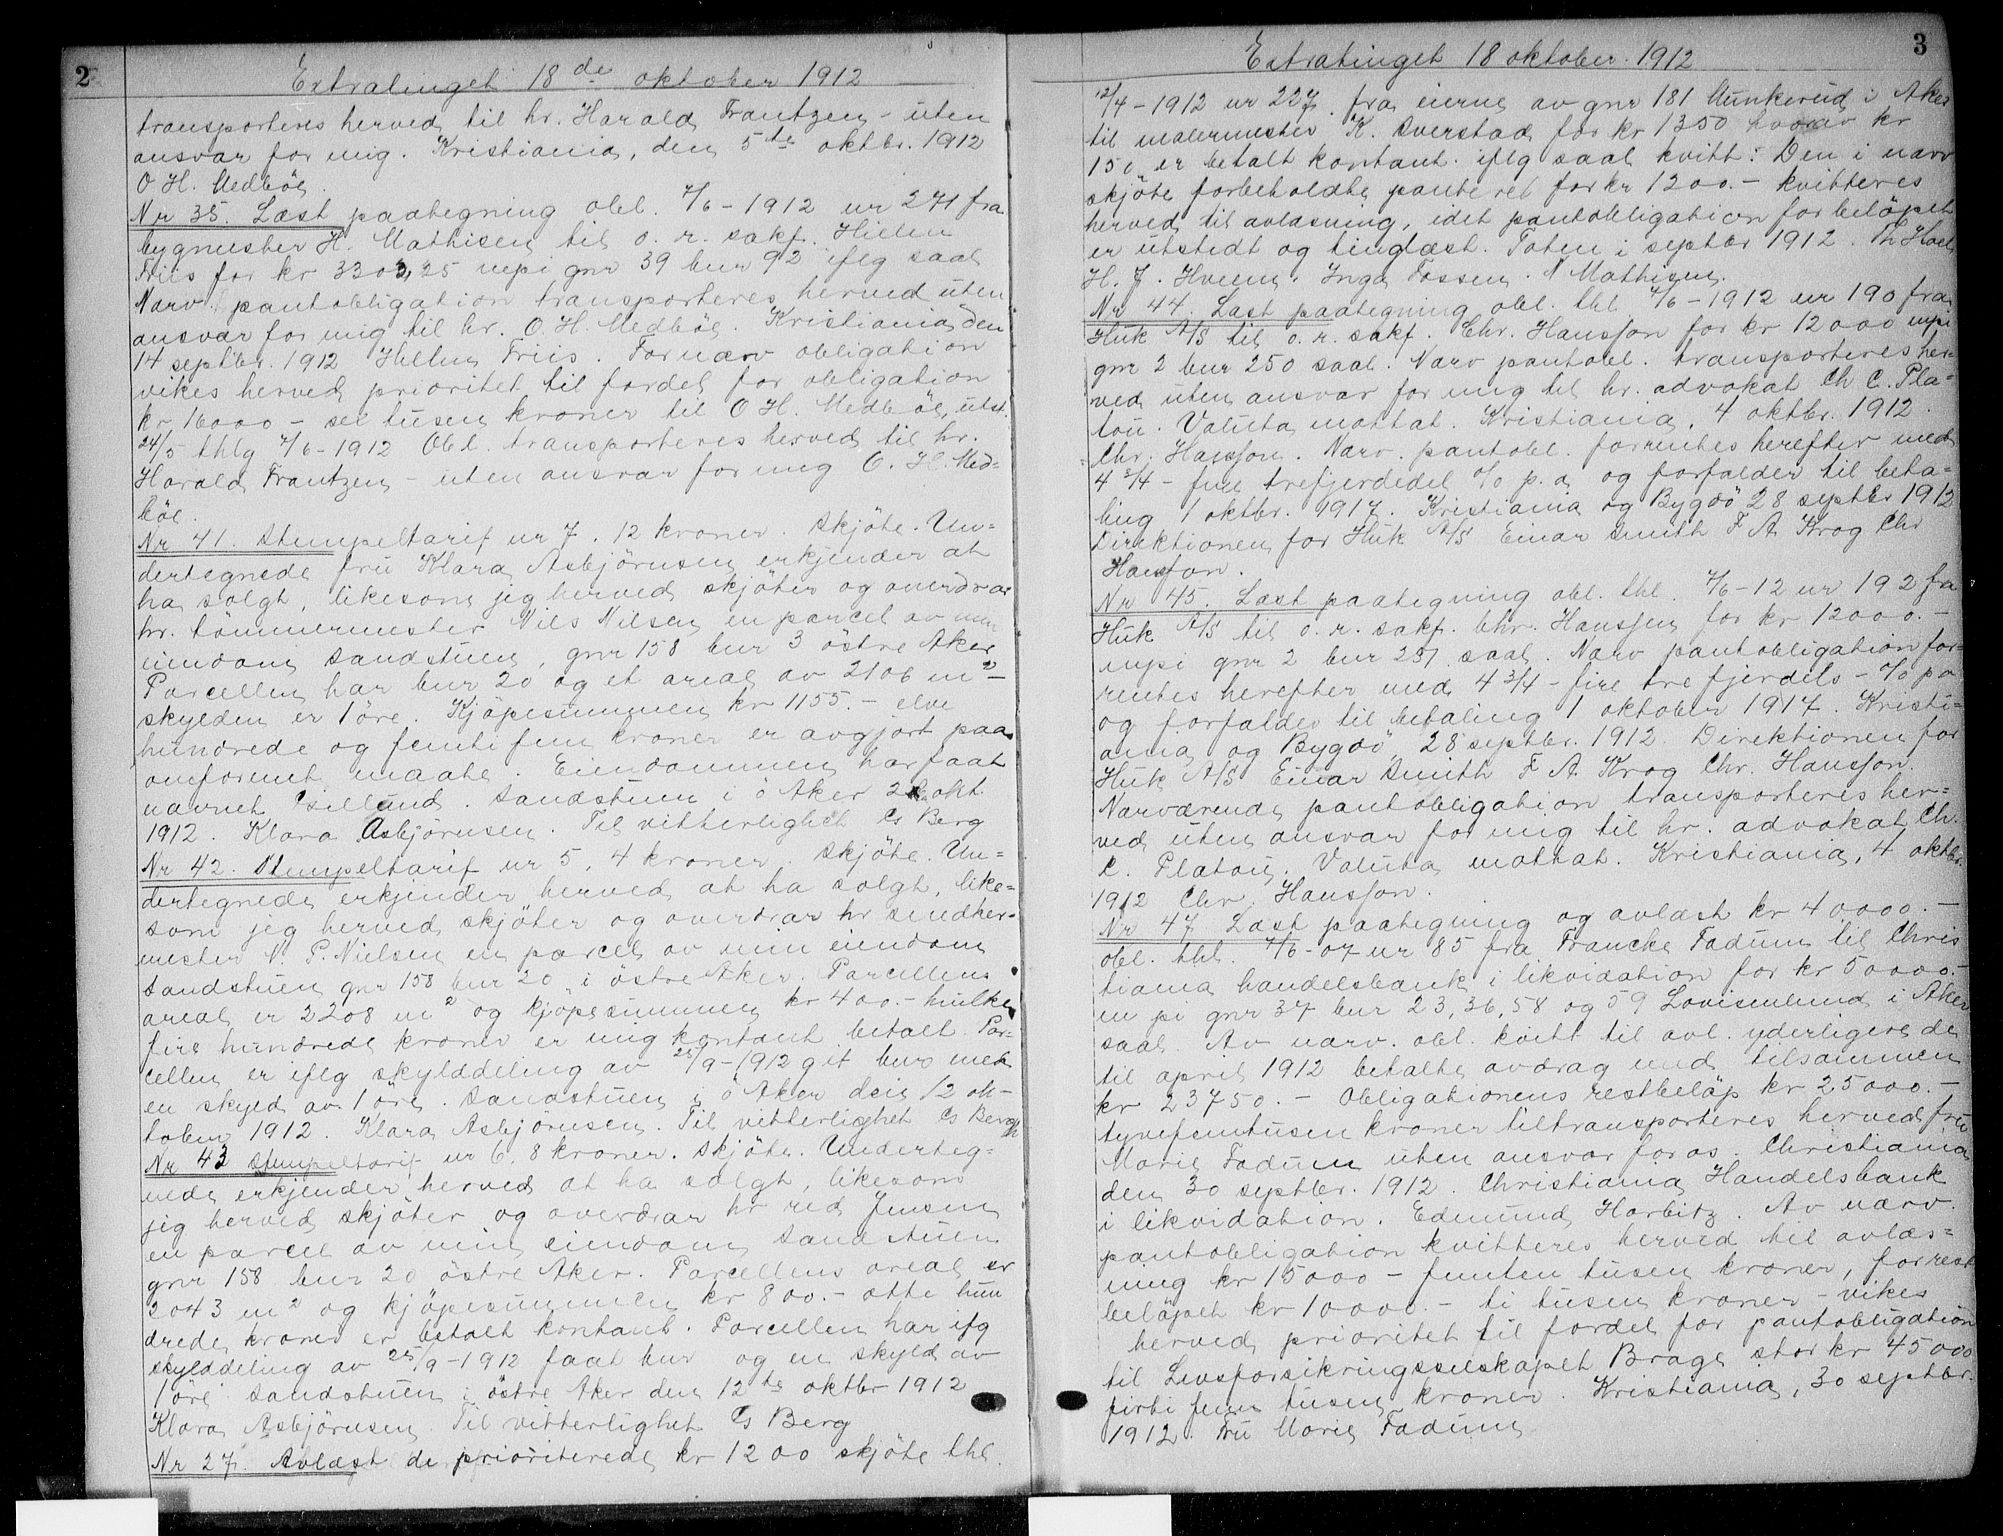 2
Extratinget 18de oktober 1912
transporteres herved til hr. Harald Frantzen - uten
ansvar for mig. Kristiania, den 5te oktbr. 1912
O H. Medböe.
Nr 35. Læst paategning obl. 7/6 - 1912 nr 271 fra
bygmester H. Mathisen til o. r. sakf. Hillen
Friis for kr 3303,25 mpi gnr 39 bnr 92 iflg saal
Narv. pantobligation transporteres herved uten
ansvar for mig til hr. O. H. Medböe. Kristiania den
14 septbr. 1912 Friis. For nærv obligation
vikes herved prioritet til fordel for obligation
kr 16000 - sei tusen kroner til O H. Medböe, utst.
24/5 thlg 7/6 - 1912 Obl. transporteres herved til hr.
Harald Frantzen - uten ansvar for mig O. H. Med=
böe.
Nr 41. Stempeltarif nr 7. 12 kroner. Skjöte. Un=
dertegnede fru Klara Asbjörnsen erkjender at
ha solgt, likesom jeg herved skjöter og overdrar
hr. tömmermester Nils Nilsen en parcel av min
eiendom Sandstuen, gnr 158 bnr 3 östre Aker
Parcellen har bnr 20 og et areal av 2106 m2 -
skylden er 1 öre. Kjöpesummen kr 1155. - elve
hundrede og femti fem kroner er avgjort paa
omforenet maate. Eiendommen har faat
navnet . Sandstuen i ö Aker 2 okt.
1912. Klara Asbjörnsen. Til vitterlighet Cs Berg
Nr 42. Stempeltarif nr 5, 4 kroner. Skjöte. Un=
dertegnede erkjender herved at ha solgt, like=
som jeg herved skjöter og overdrar hr snedker-
mester N. P. Nielsen en parcel av min eiendom
Sandstuen gnr 158 bnr 20 i östre Aker. Parcellens
areal er 2208 m2 og kjöpesummen kr 400.- hvilke
fire hundrede kroner er mig kontant betalt. Par-
cellen er iflg skylddeling av 25/9 - 1912 git bnr med
en skyld av 1 öre. Sandstuen i ö Aker den 12 ok-
tober 1912. Klara Asbjörnsen. Til vitterlighet Cs Berg
Nr 43 Stempeltarif nr 6. 8 kroner. Skjöte. Underteg=
nede erkjender herved at ha solgt, likesom
jeg herved skjöter og overdrar hr Jensen
en parcel av min eiendom Sandstuen
gnr 158 bnr 20 östre Aker. Parcellens areal er
3043 m2 og kjöpesummen kr 800.- otte hun
drede kroner er betalt kontant. Parcellen har iflg
skylddeling av 25/9 - 1912 faat bnr og en skyld av
1 öre Sandstuen i östre Aker den 12te oktbr 1912
Klara Asbjörnsen. Til vitterlighet Cs Berg
Nr 27. Avlæst de prioriterede kr 1200 skjöte thl.
3
Extratinget 18 oktober 1912
12/4 - 1912 nr 227. fra eierne av gnr 181 Munkerud i Aker
til malermester K. Sverstad for kr 1350 hvorav kr
150 er betalt kontant. iflg saal kvitt: Den i narv
skjöte forbeholdte panteret for kr 1200.- kvitteres
herved til avlæsning, idet pantobligation for belöpet
er utstedt og tinglæst. Toten i septbr 1912. Th Hoel
H. J. Hveem. Inga Fossen. N Mathisen.
Nr 44. Læst paategning obl. thl 7/6 - 1912 nr 190 fra
Huk A/S til o. r. sakf. Chr. Hansson for kr 12000 mpi
gnr 2 bnr 250 saal. Narv pantobl. transporteres her-
ved uten ansvar for mig til hr. advokat Ch C. Pla=
tou. Valuta mottat. Kristiania, 4 oktbr. 1912.
Chr. Hansson. Narv. pantobl. forrentes herefter med
4 3/4 - fire trefjerdedel o/o p. a og forfalder til beta=
ling 1 oktbr. 1917. Kristiania og Bygdö 28 septbr 1912
Direktionen for Huk A/S Einar Smith F A. Krog Chr
Hansson.
Nr 45. Læst paategning obl. thl. 7/6 - 12 nr 192 fra
Huk A/S til o. r. sakf. Chr. Hansson for kr 12000.-
mpi gnr 2 bnr 251 saal. Narv pantobligation for=
rentes herefter med 4 3/4 - fire tre fjerdels - o/o pa
og forfalder til betaling 1 oktober 1917. Kristi=
ania og Bygdö 28 septbr. 1912. Direktionen for
Huk A/S Einar Smith F A. Krog Chr. Hansson.
Narværende pantobligation transporteres her=
ved uten ansvar for mig til hr. advokat Ch.
C. Platou. Valuta mottat. Kristiania, 4 oktbr
1912 Chr. Hansson.
Nr 47 Læst paategning og avlæst kr 40000.-
obl. thl. 7/6 - 07 nr 85 fra Francke Fadum til Chris
tiania handelsbank i likvidation for kr 50000.-
m pi gnr 37 bnr 23, 36, 58 og 59 Lovisenlund i Aker
saal. Av narv. obl. kvitt til avl. yderligere de
til april 1912 betalte avdrag med tilsammen
kr 23750. - Obligationens restbeløp kr 25000.-
tyvefemtusen kroner tiltransporteres herved fru
Marie Fadum uten ansvar for os. Christiania
den 30 septbr. 1912. Christiania Handelsbank
i likvidation. Edmund Harbitz. Av narv.
pantobligation kvitteres herved til avlæs=
ning kr 15000 - femten tusen kroner, for rest
beløpet kr 10000.- ti tusen kroner - vikes
herved prioritet til fordel for pantobligation
til Livsforsikringsselskapet Brage stor kr 45000
firti fem tusen kroner. Kristiania, 30 septbr.
1912. Fru Marie Fadum